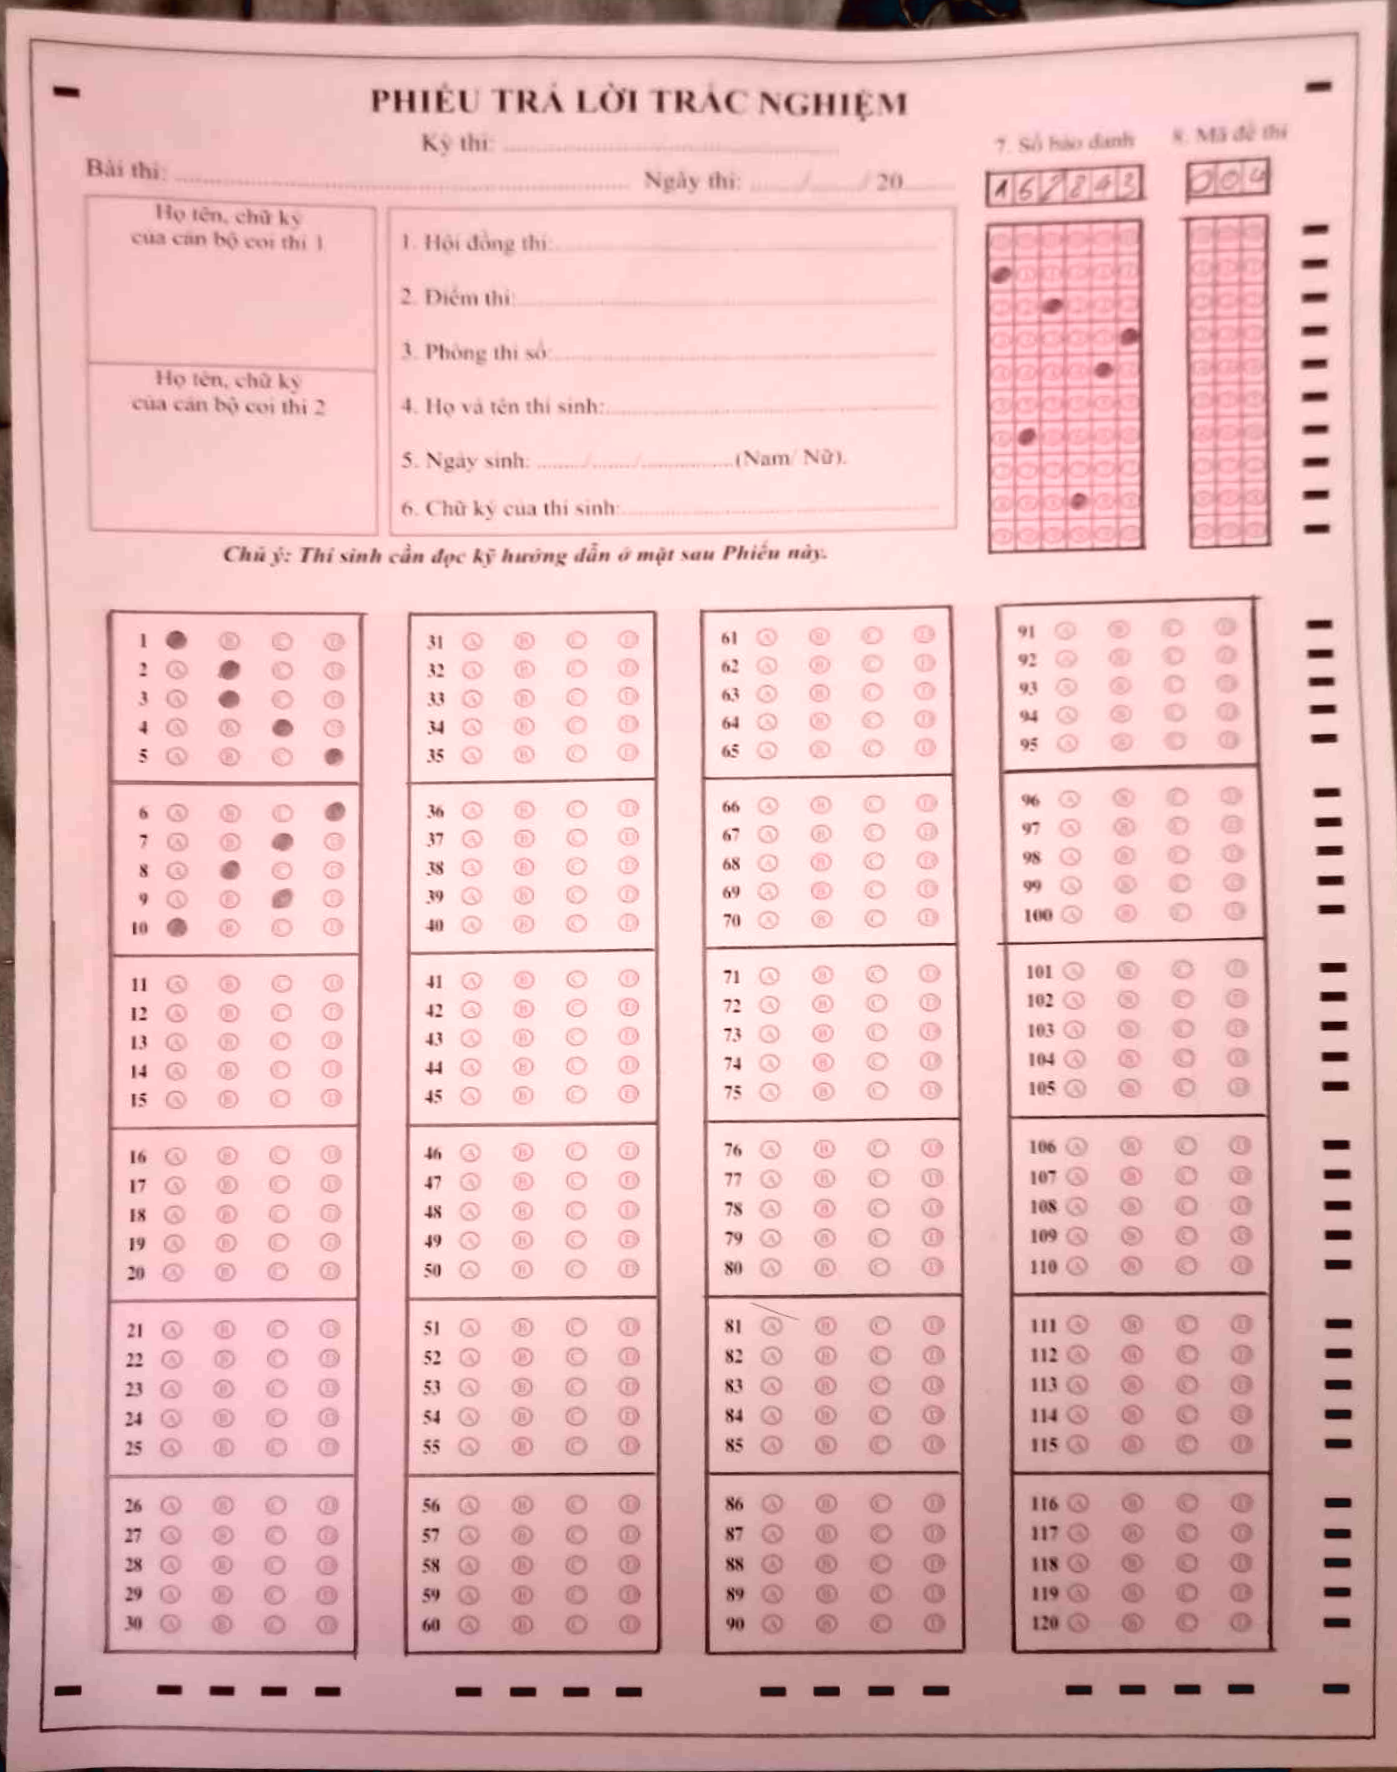 PHIẾU TRẢ LỜI TRẮC NGHIỆM
Kỳ thi:
Bài thi:
Ngày thi: / / 20
7. Số báo danh
8. Mã đề thi
Họ tên, chữ ký
của cán bộ coi thi 1
Họ tên, chữ ký
của cán bộ coi thi 2
1. Hội đồng thi:
2. Điểm thi:
3. Phòng thi số:
4. Họ và tên thí sinh:
5. Ngày sinh: / / (Nam/ Nữ).
6. Chữ ký của thí sinh:
004
Chú ý: Thí sinh cần đọc kỹ hướng dẫn ở mặt sau Phiếu này.
1 B C D
2 A C D
3 A C D
4 A B D
5 A B C
6 A B C
7 A B D
8 A C D
9 A B D
10 B C D
11 A B C D
12 A B C D
13 A B C D
14 A B C D
15 A B C D
16 A B C D
17 A B C D
18 A B C D
19 A B C D
20 A B C D
21 A B C D
22 A B C D
23 A B C D
24 A B C D
25 A B C D
26 A B C D
27 A B C D
28 A B C D
29 A B C D
30 A B C D
31 A B C D
32 A B C D
33 A B C D
34 A B C D
35 A B C D
36 A B C D
37 A B C D
38 A B C D
39 A B C D
40 A B C D
41 A B C D
42 A B C D
43 A B C D
44 A B C D
45 A B C D
46 A B C D
47 A B C D
48 A B C D
49 A B C D
50 A B C D
51 A B C D
52 A B C D
53 A B C D
54 A B C D
55 A B C D
56 A B C D
57 A B C D
58 A B C D
59 A B C D
60 A B C D
61 A B C D
62 A B C D
63 A B C D
64 A B C D
65 A B C D
66 A B C D
67 A B C D
68 A B C D
69 A B C D
70 A B C D
71 A B C D
72 A B C D
73 A B C D
74 A B C D
75 A B C D
76 A B C D
77 A B C D
78 A B C D
79 A B C D
80 A B C D
81 A B C D
82 A B C D
83 A B C D
84 A B C D
85 A B C D
86 A B C D
87 A B C D
88 A B C D
89 A B C D
90 A B C D
91 A B C D
92 A B C D
93 A B C D
94 A B C D
95 A B C D
96 A B C D
97 A B C D
98 A B C D
99 A B C D
100 A B C D
101 A B C D
102 A B C D
103 A B C D
104 A B C D
105 A B C D
106 A B C D
107 A B C D
108 A B C D
109 A B C D
110 A B C D
111 A B C D
112 A B C D
113 A B C D
114 A B C D
115 A B C D
116 A B C D
117 A B C D
118 A B C D
119 A B C D
120 A B C D